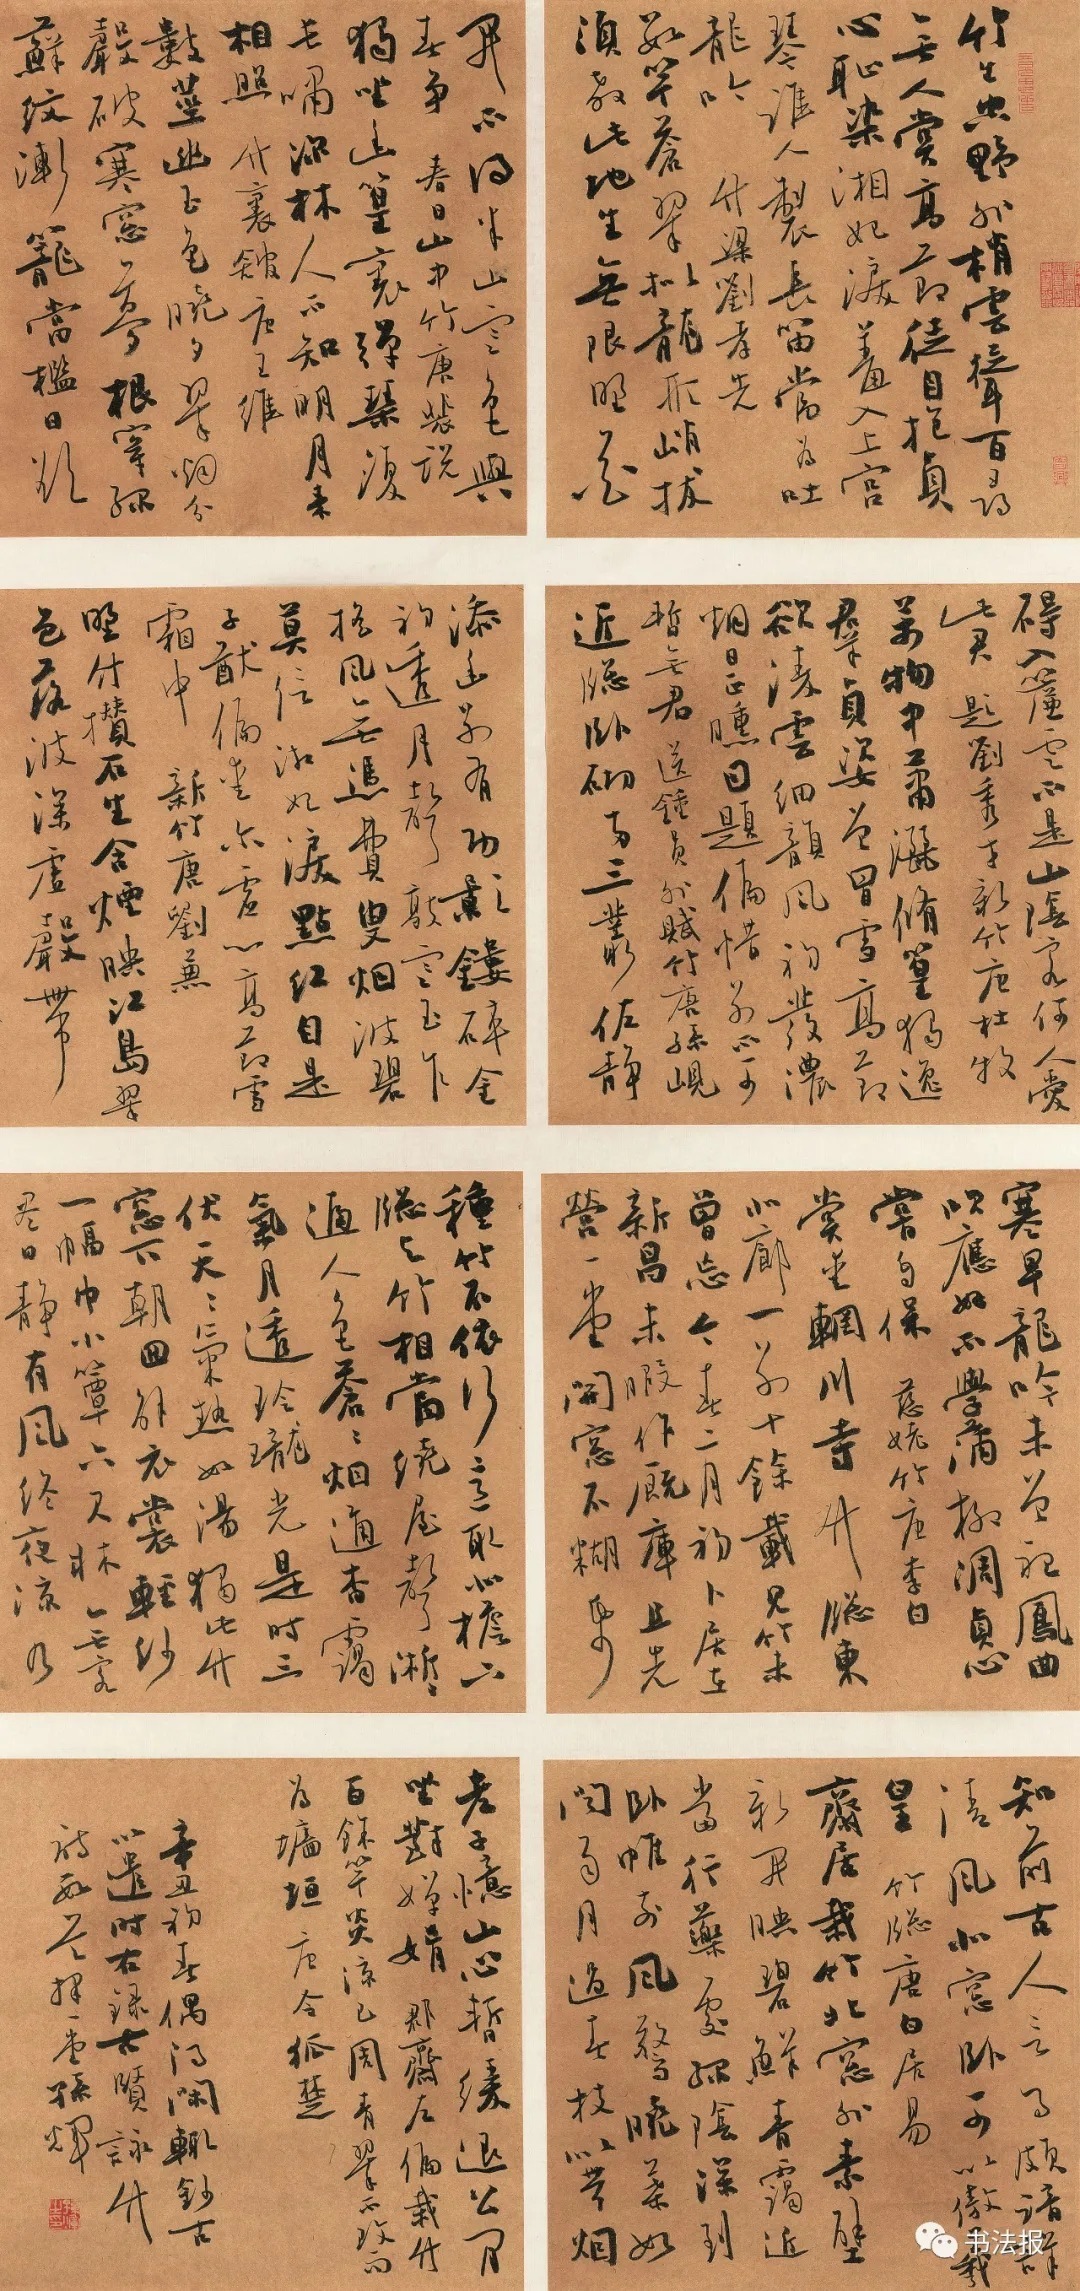 竹生空野外梢雲聳百尋
無人賞高節徒自抱貞
心恥染湘妃淚羞入上宮
琴誰人製長笛當為吐
龍吟 竹梁劉孝先
數竿蒼翠擬龍形峭拔
須教此地生無限野花
開不得半山寒色與
春爭 春日山中竹唐裴說
獨坐幽篁裏彈琴復
長嘯深林人不知明月来
相照 竹裏館唐王維
數莖幽玉色曉夕翠烟分
聲破寒窓夢根穿綠
蘚紋漸籠當檻日欲
礙入簾雲不是山陰客何人愛
此君 題劉秀才新竹唐杜牧
萬物中蕭灑脩篁獨逸
羣貞姿曾冒雪高節
欲凌雲細韻風初發濃
烟日正曛因題偏惜别不可
暫無君 送鍾員外賦竹唐孫峴
近牕卧砌两三叢佐靜
添幽别有功影鏤碎金
初透月聲敲寒玉乍
搖風無憑費叟烟波碧
莫信湘妃淚點紅自是
子猷偏愛尔虛心高節雪
霜中 新竹唐劉兼
野竹攢石生含煙映江島翠
色落波深虛聲帶
寒早龍吟未曾聽鳳曲
吹應好不學蒲柳凋貞心
嘗自保 慈姥竹唐李白
嘗愛輞川寺竹牕東
北廊一别十餘載見竹未
曾忘今春二月初卜居在
新昌未暇作厩庫且先
營一堂開窓不糊紙
種竹不依行意取北檐下
牕与竹相當繞屋聲淅々
逼人色蒼々烟通杳靄
氣月透玲瓏光是時三
伏天々氣熱如湯獨此竹
窓下朝回解衣裳輕紗
一幅巾小簟六尺牀無客
尽日靜有風終夜涼乃
知前古人言事頗諳詳
清風北窓卧可以傲羲
皇 竹牕唐白居易
齋居栽竹北窓外素壁
新開映碧鮮青靄近
當行藥處綠陰深到
卧帷前風驚曉葉如
聞雨月過春枝似帶烟
老子憶山心暫緩退公閒
坐對嬋娟 郡齋左偏栽竹
百餘竿炎涼已周青翠不改而
為墻垣 唐令狐楚
辛丑初春偶得閑輒鈔古
以遣時右録古賢詠竹
詩數首 擇一堂孫輝
书法报